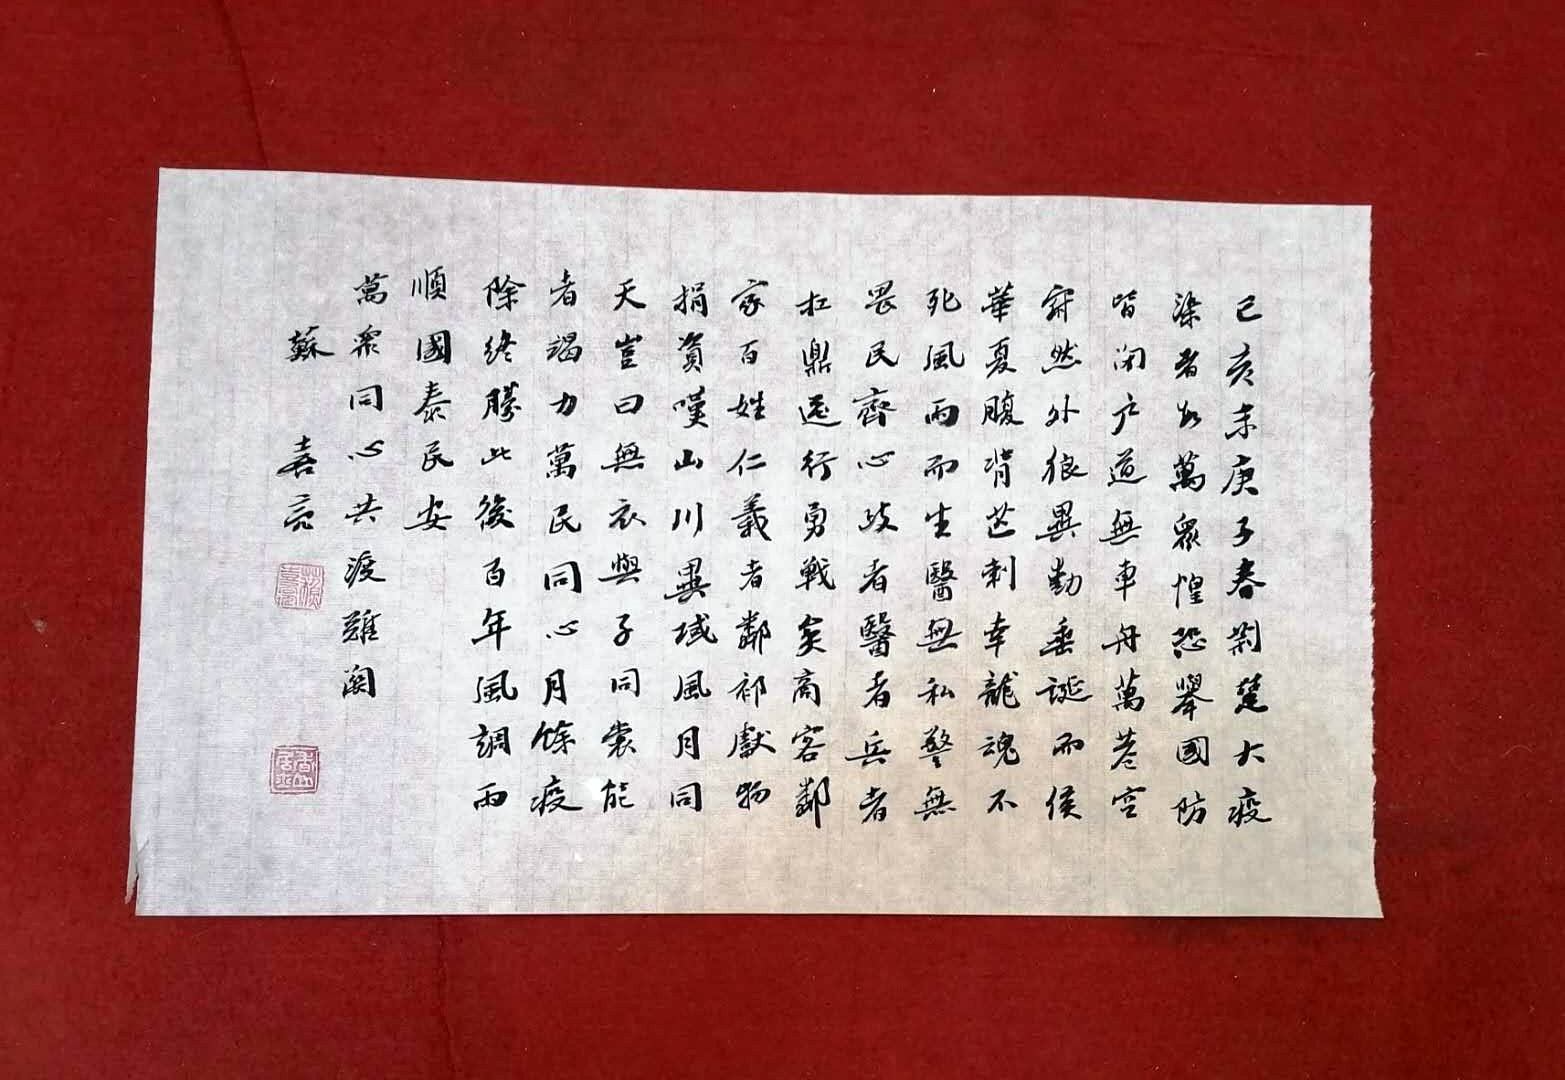 己亥末庚子春荆楚大疫
染者数萬眾惶恐舉國防
皆閉户道無車舟萬巷空
寂然外狼異動垂涎而侯
華夏腹背芒刺幸龍魂不
死風雨而生醫無私警無
畏民齊心政者醫者兵者
扛鼎逆行勇戰矣商客鄰
家百姓仁義者鄰祁獻物
捐資嘆山川異域風月同
天豈曰無衣與子同裳能
者竭力萬民同心月餘疫
除終勝此後百年風調雨
順國泰民安
萬眾同心共渡難關
蘇喜亮